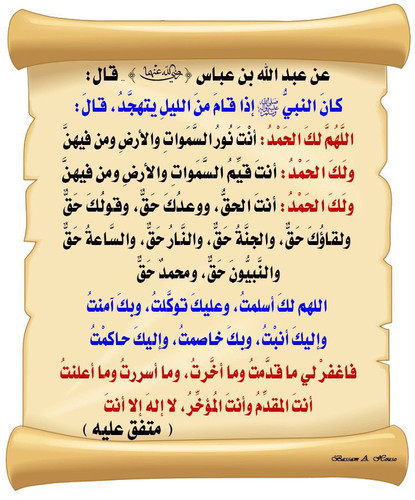 عن عبد الله بن عباس ﴿ رضي الله عنهما ﴾ . قال :
كانَ النبيُّ ﷺ إذا قامَ منَ الليلِ يتهجَّدُ ، قالَ :
اللَّهُمَّ لكَ الحَمْدُ : أنْتَ نُورُ السَّمَواتِ والأرضِ ومن فيهنَّ
ولَكَ الحَمْدُ : أنتَ قيِّمُ السَّمَواتِ والأرضِ ومن فيهنَّ
ولكَ الحَمْدُ : أنتَ الحقُّ ، ووعدُكَ حَقٌّ ، وقولُكَ حَقٌّ
ولقاؤُكَ حَقٌّ ، والجنَّةُ حَقٌّ ، والنَّارُ حَقٌّ ، والسَّاعةُ حَقٌّ
والنَّبيُّونَ حَقٌّ ، ومحمدٌ حَقٌّ
اللهم لكَ أسلمتُ ، وعليكَ توكَّلتُ ، وبكَ آمنتُ
وإليكَ أنَبْتُ ، وبكَ خاصمتُ ، وإليكَ حاكمْتُ
فاغفرْ لي ما قدَّمتُ وما أخَّرتُ ، وما أسررتُ وما أعلنتُ
أنتَ المقدِّمُ وأنتَ المُؤخِّرُ ، لا إلهَ إلا أنتَ
( متفق عليه )
Bassam A. Houso